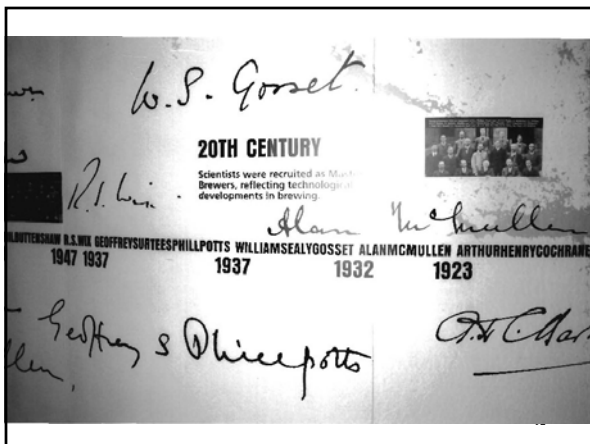 W. S. Gosset.
20TH CENTURY
Scientists were recruited as
Brewers, reflecting technological
developments in brewing.
R.S. Wix.
Alan McMullen
BUTTENSHAW R.S.WIX GEOFFREYSURTEESPHILLPOTTS WILLIAMSEALYGOSSET ALANMCMULLEN ARTHURHENRYCOCHRANE
1947 1937 1937 1932 1923
Geoffrey S Phillpotts